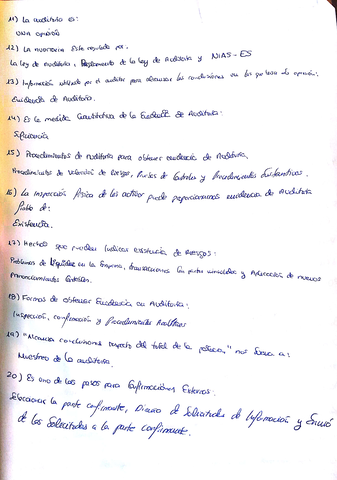 11) La auditoria es:
Una opinión
12) La auditoria Esta regulada por:
La ley de auditoria, Reglamento de la ley de Auditoria y NIAS-ES
13) Información utilizada por el auditor para alcanzar las condiciones en las que basa la opinión:
Evidencia de Auditoria.
14) Es la medida Cuantitativa de la Evidencia de Auditoria:
Suficiencia
15) Procedimientos de Auditoria para obtener evidencia de Auditoria,
Procedimientos de Valoración de riesgo, Pruebas de Controles y Procedimientos Sustantivos.
16) La inspección física de los activos puede proporcionarnos evidencia de Auditoria
de:
Existencia.
17) Hechos que pueden indicar existencia de Riesgos:
Problemas de liquidez en la Empresa, transacciones con partes vinculadas y Aplicación de nuevos
Pronunciamientos Contables.
18) Formas de obtener Evidencia en Auditoria:
Inspección, confirmación y Procedimientos Analíticos
19) "Alcanza condiciones respecto del total de la población," nos lleva a:
Muestreo de la auditoria.
20) Es uno de los pasos para Confirmaciones Externas.
Seleccionar la parte confirmante, Diseño de Solicitudes de Información y Envió
de las Solicitudes a la parte confirmante.